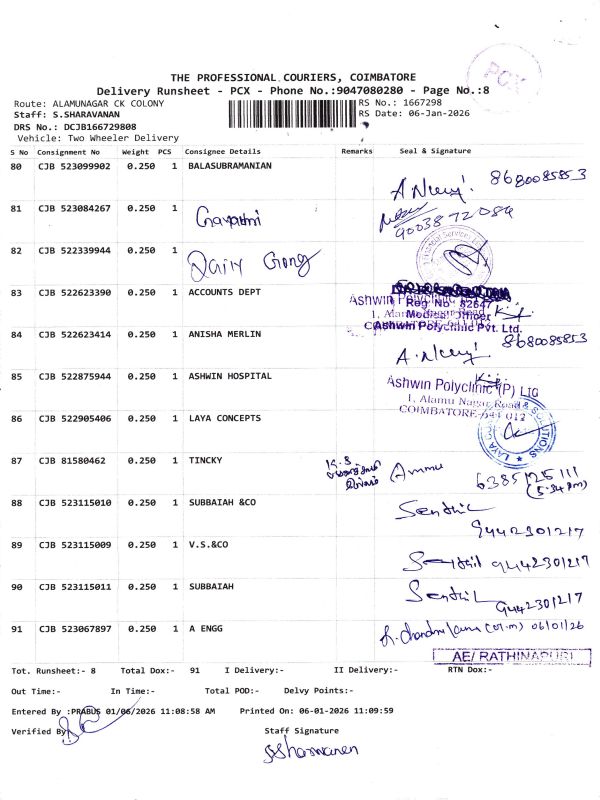 PCX
THE PROFESSIONAL COURIERS, COIMBATORE
Delivery Runsheet - PCX - Phone No.:9047080280 - Page No.:8
Route: ALAMUNAGAR CK COLONY RS No.: 1667298
Staff: S.SHARAVANAN RS Date: 06-Jan-2026
DRS No.: DCJB166729808
Vehicle: Two Wheeler Delivery
S No Consignment No Weight PCS Consignee Details Remarks Seal & Signature
80 CJB 523099902 0.250 1 BALASUBRAMANIAN 8680085853
81 CJB 523084267 0.250 1 Gayathri 9003872084
82 CJB 522339944 0.250 1 Dairy
83 CJB 522623390 0.250 1 ACCOUNTS DEPT
Ashwin Polyclinic
Reg No 82647
1, Alamu Nagar Road
Medical Officer
Ashwin Polyclinic Pvt. Ltd.
84 CJB 522623414 0.250 1 ANISHA MERLIN 8680085853
85 CJB 522875944 0.250 1 ASHWIN HOSPITAL
Ashwin Polyclinic (P) Ltd
1, Alamu Nagar Road
COIMBATORE-641 012
86 CJB 522905406 0.250 1 LAYA CONCEPTS
87 CJB 81580462 0.250 1 TINCKY K.S Ammu 6385125111
(5:34 pm)
88 CJB 523115010 0.250 1 SUBBAIAH &CO Senthil
9442301217
89 CJB 523115009 0.250 1 V.S.&CO Senthil 9442301217
90 CJB 523115011 0.250 1 SUBBAIAH Senthil
9442301217
91 CJB 523067897 0.250 1 A ENGG 06/01/26
AE/ RATHINAPURI
Tot. Runsheet:- 8 Total Dox:- 91 I Delivery:- II Delivery:- RTN Dox:-
Out Time:- In Time:- Total POD:- Delvy Points:-
Entered By :PRABUS 01/06/2026 11:08:58 AM Printed On: 06-01-2026 11:09:59
Verified By Staff Signature